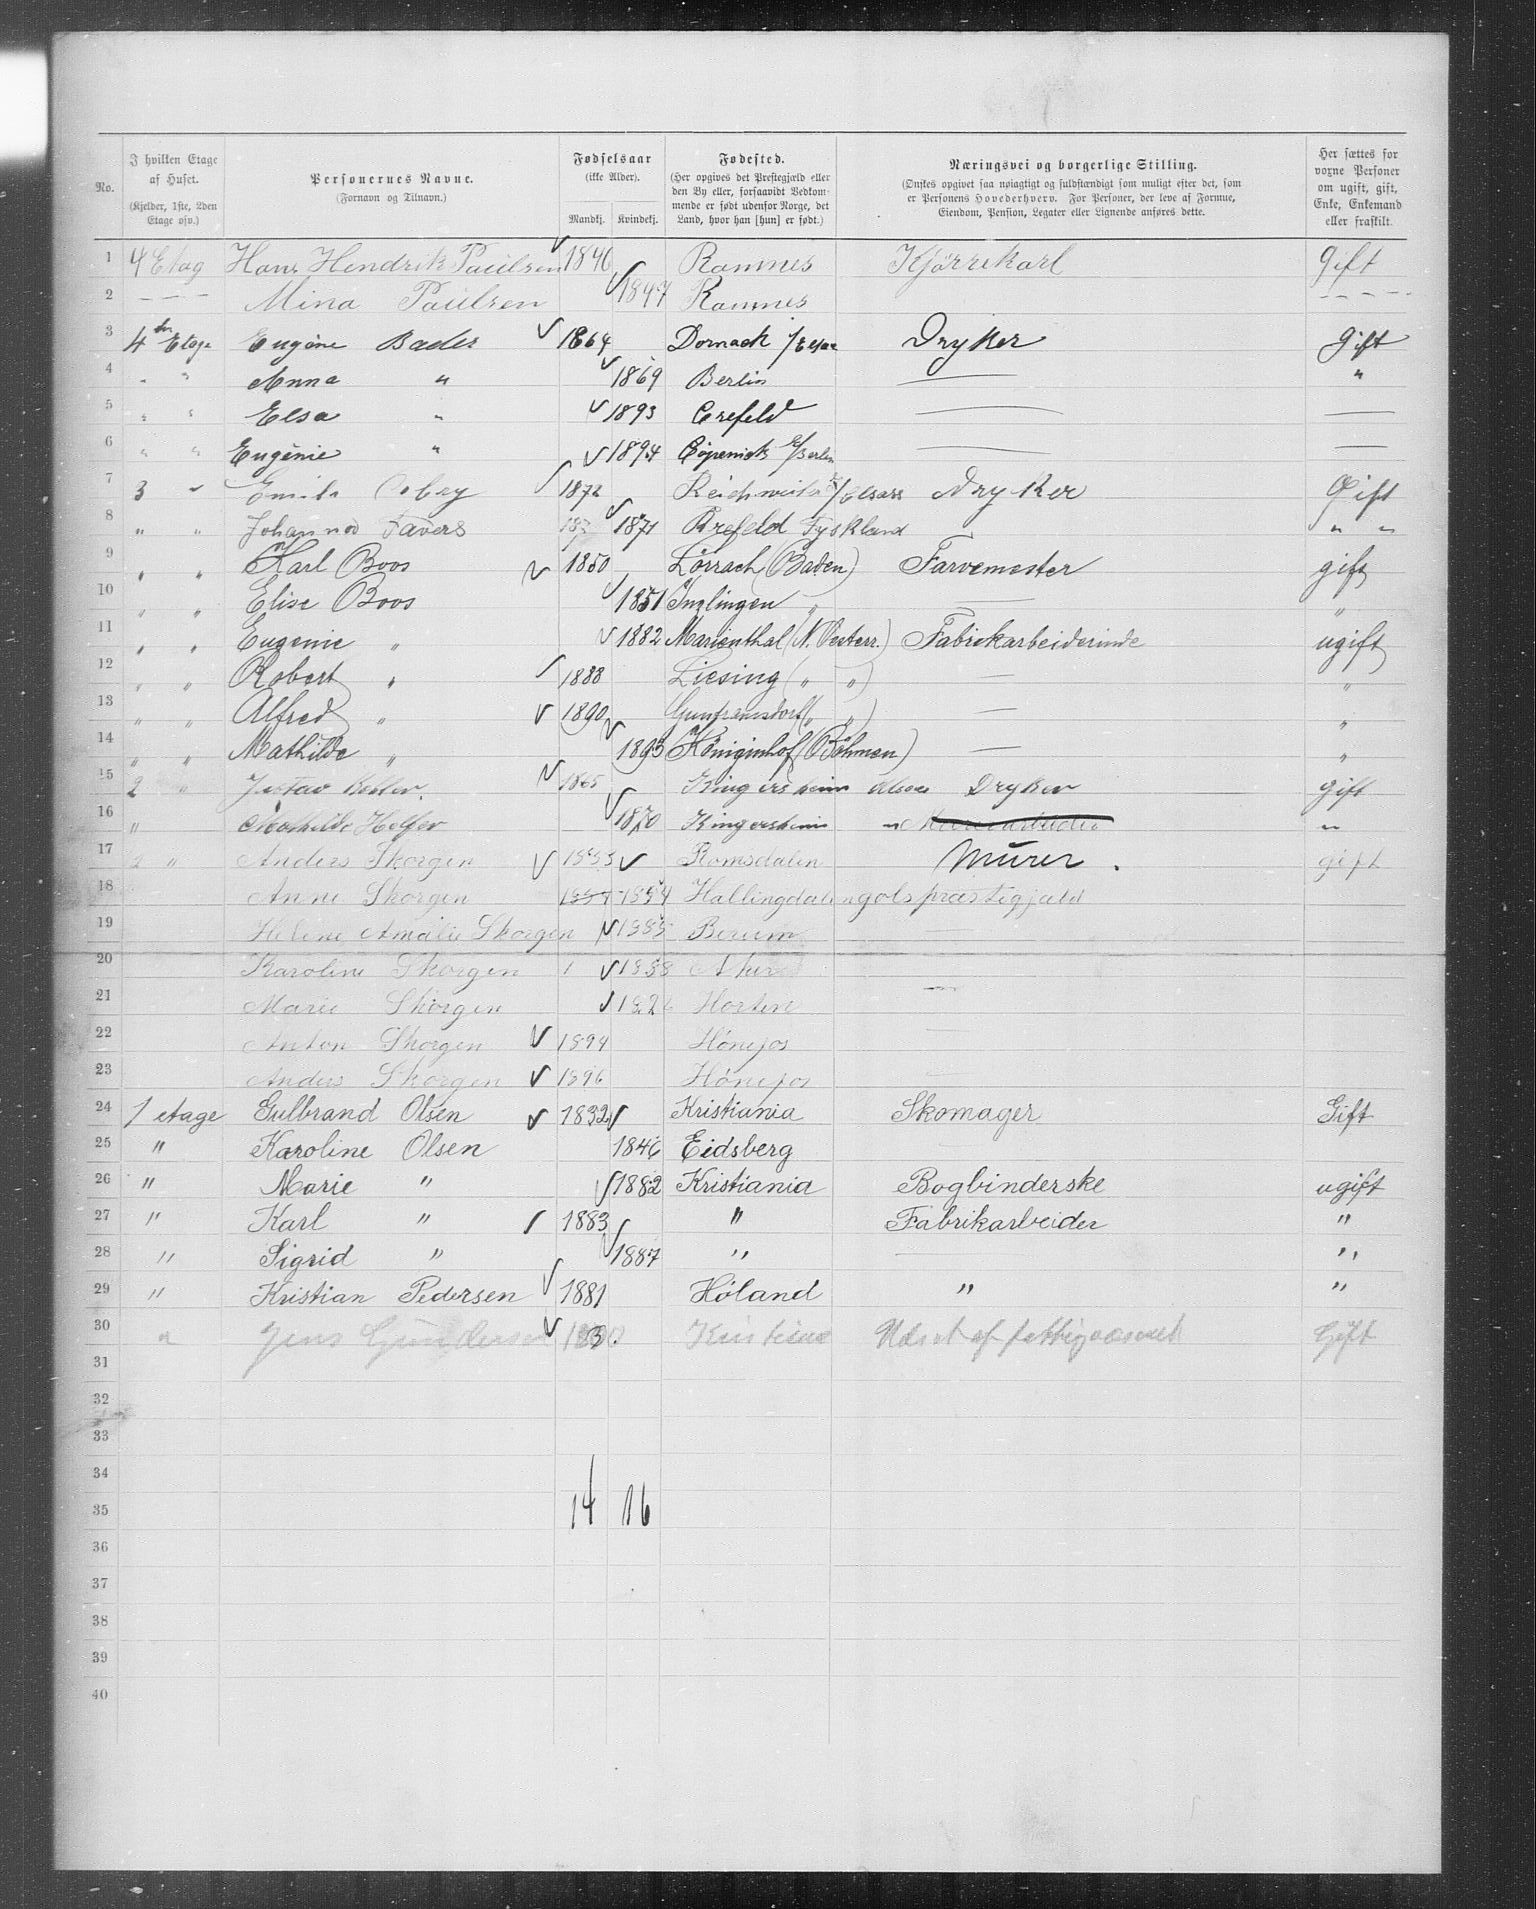 No.
I hvilken Etage af Huset.
(Kjelder, 1ste, 2den Etage osv.)
Personernes Navne.
(Fornavn og Tilnavn.)
Fødselsaar
(ikke Alder).
Mandkj. Kvindekj.
Fødested.
(Her opgives det Prestegjæld eller den By eller, forsaavidt Vedkommende er født udenfor Norge, det Land, hvor han [hun] er født.)
Næringsvei og borgerlige Stilling.
(Ønskes opgivet saa nøiagtigt og fuldstændigt som muligt efter det, som er Personens Hovederhverv. For Personer, der leve af Formue, Eiendom, Pension, Legater eller Lignende anføres dette.
Her sættes for voxne Personer om ugift, gift, Enke, Enkemand eller fraskilt.
1 4 Etag Hans Hendrik Paulsen 1846 Ramnes Kjørrekarl gift
2 - - - Mina Paulsen 1847 Ramnes - - - -
3 4de Etage Eugène Bader 1864 Dornach i/Elsas Dryker gift
4 " " Anna " 1869 Berlin — "
5 " " Elsa " 1893 Crefeld — —
6 " " Eugénie " 1894 Cöpenick b/Berlin — —
7 3 " Emile 1872 i/Elsass Dryker Gift
8 " " Favers 1871 Krefeld Tyskland " "
9 " " Karl Boos 1850 Lörrach (Baden) Farvemester gift
10 " " Elise Boos 1851 Inzlingen " — "
11 " " Eugenie " 1882 Marienthal (N. Oesterr.) Fabrikarbeiderinde ugift
12 " " Robert " 1888 Liesing ( " " ) — "
13 " " Alfred " 1890 Guntramsdorf ( " " ) — "
14 " " Mathilde " 1893 Königinhof (Böhmen) — "
15 2 " Gustav 1865 Kingersheim Elsass Dryker gift
16 " Mathilde Helfer 1870 Kingersheim " "
17 2 " Anders Skorgen 1853 Romsdalen Murer. gift
18 Anne Skorgen 1854 1854 Hallingdalen gols præstegjæld
19 Helene Amalie Skorgen 1885 Berum —
20 Karoline Skorgen 1 1888 Aker
21 Marie Skorgen Horten —
22 Anton Skorgen 1894 Hónefos —
23 Anders Skorgen 1896 Hónefos —
24 1 etage Gulbrand Olsen 1832 Kristiania Skomager Gift
25 " Karoline Olsen 1846 Eidsberg
26 " Marie " 1882 Kristiania Bogbinderske ugift
27 " Karl " 1883 " Fabrikarbeider "
28 " Sigrid " 1887 " — "
29 " Kristian Pedersen 1881 Høland " "
30 " Jens Gundersen af fattigvæsenet Gift
31
32
33
34
35 14 16
36
37
38
39
40